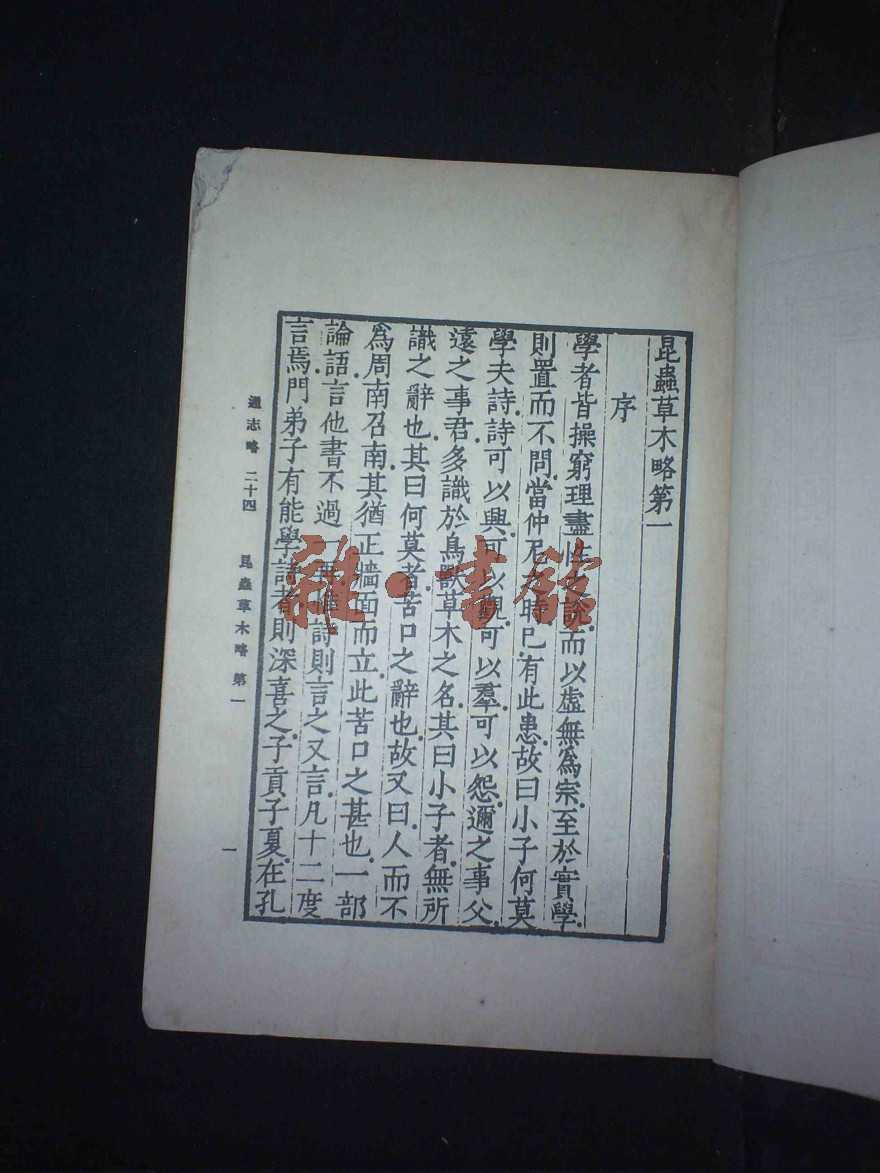 昆蟲草木略第一
序
學者皆操窮理盡性之說而以虛無爲宗至於實學
則置而不問當仲尼之時已有此患故曰小子何莫
學夫詩詩可以興可以觀可以羣可以怨邇之事父
遠之事君多識於鳥獸草木之名其曰小子者無所
識之辭也其曰何莫者苦口之辭也故又曰人而不
爲周南召南其猶正牆面而立此苦口之甚也一部
論語言他書不過一再惟詩則言之又言凡十二度
言焉門弟子有能學詩者則深喜之子貢子夏在孔
通志略 二十四 昆蟲草木略 第一
一
雜·書館